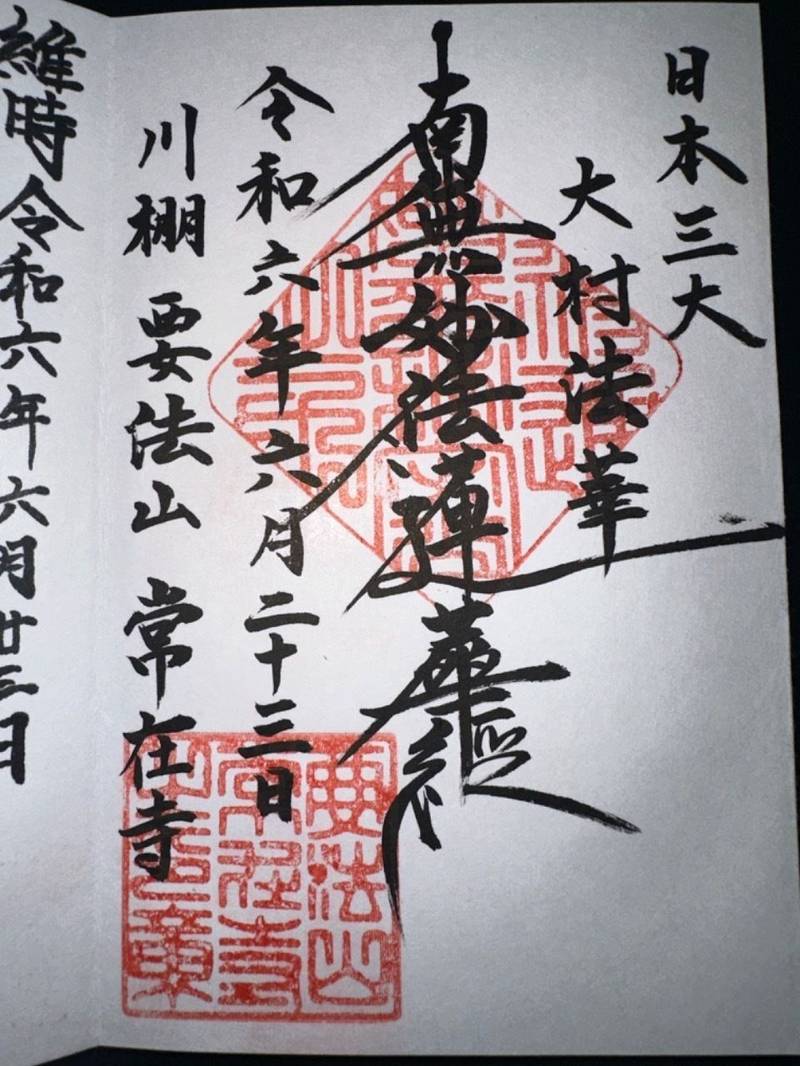 日本三大
大村法華
南無妙法蓮華経
令和六年六月二十三日
川棚 要法山 常在寺
要法山
常在寺
維時令和六年六月廿三日